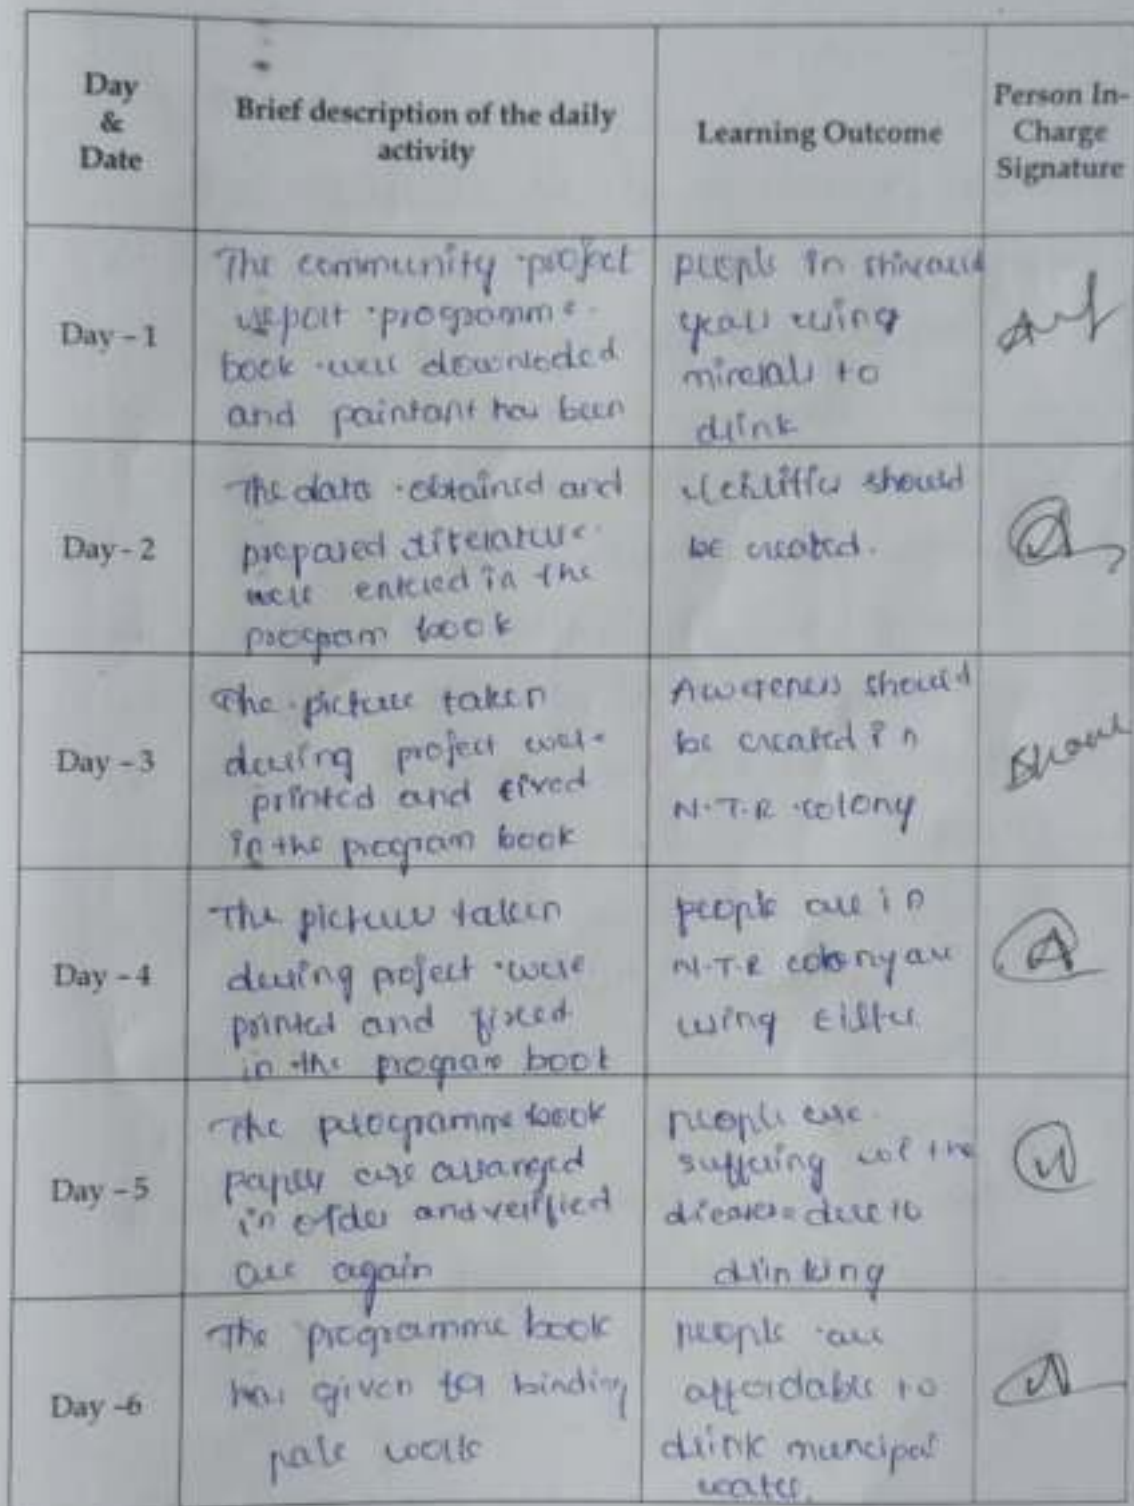 Day
&
Date
Brief description of the daily
activity
Learning Outcome
Person In-
Charge
Signature
Day - 1
The community project
report programme
book were downloded
and has been
people in
years using
minerals to
drink
Day - 2
The data obtained and
prepared literature
were entered in the
program book
should
be created.
Day - 3
The picture taken
during project were
printed and fixed
in the program book
Awareness should
be created in
N.T.R colony
Day - 4
The picture taken
during project were
printed and fixed
in the program book
people are in
N.T.R colony are
using filter
Day - 5
The programme book
paper are arranged
in order and verified
are again
people are
suffering the
due to
drinking
Day -6
The programme book
has given for binding
work
people are
affordable to
drink muncipal
water.